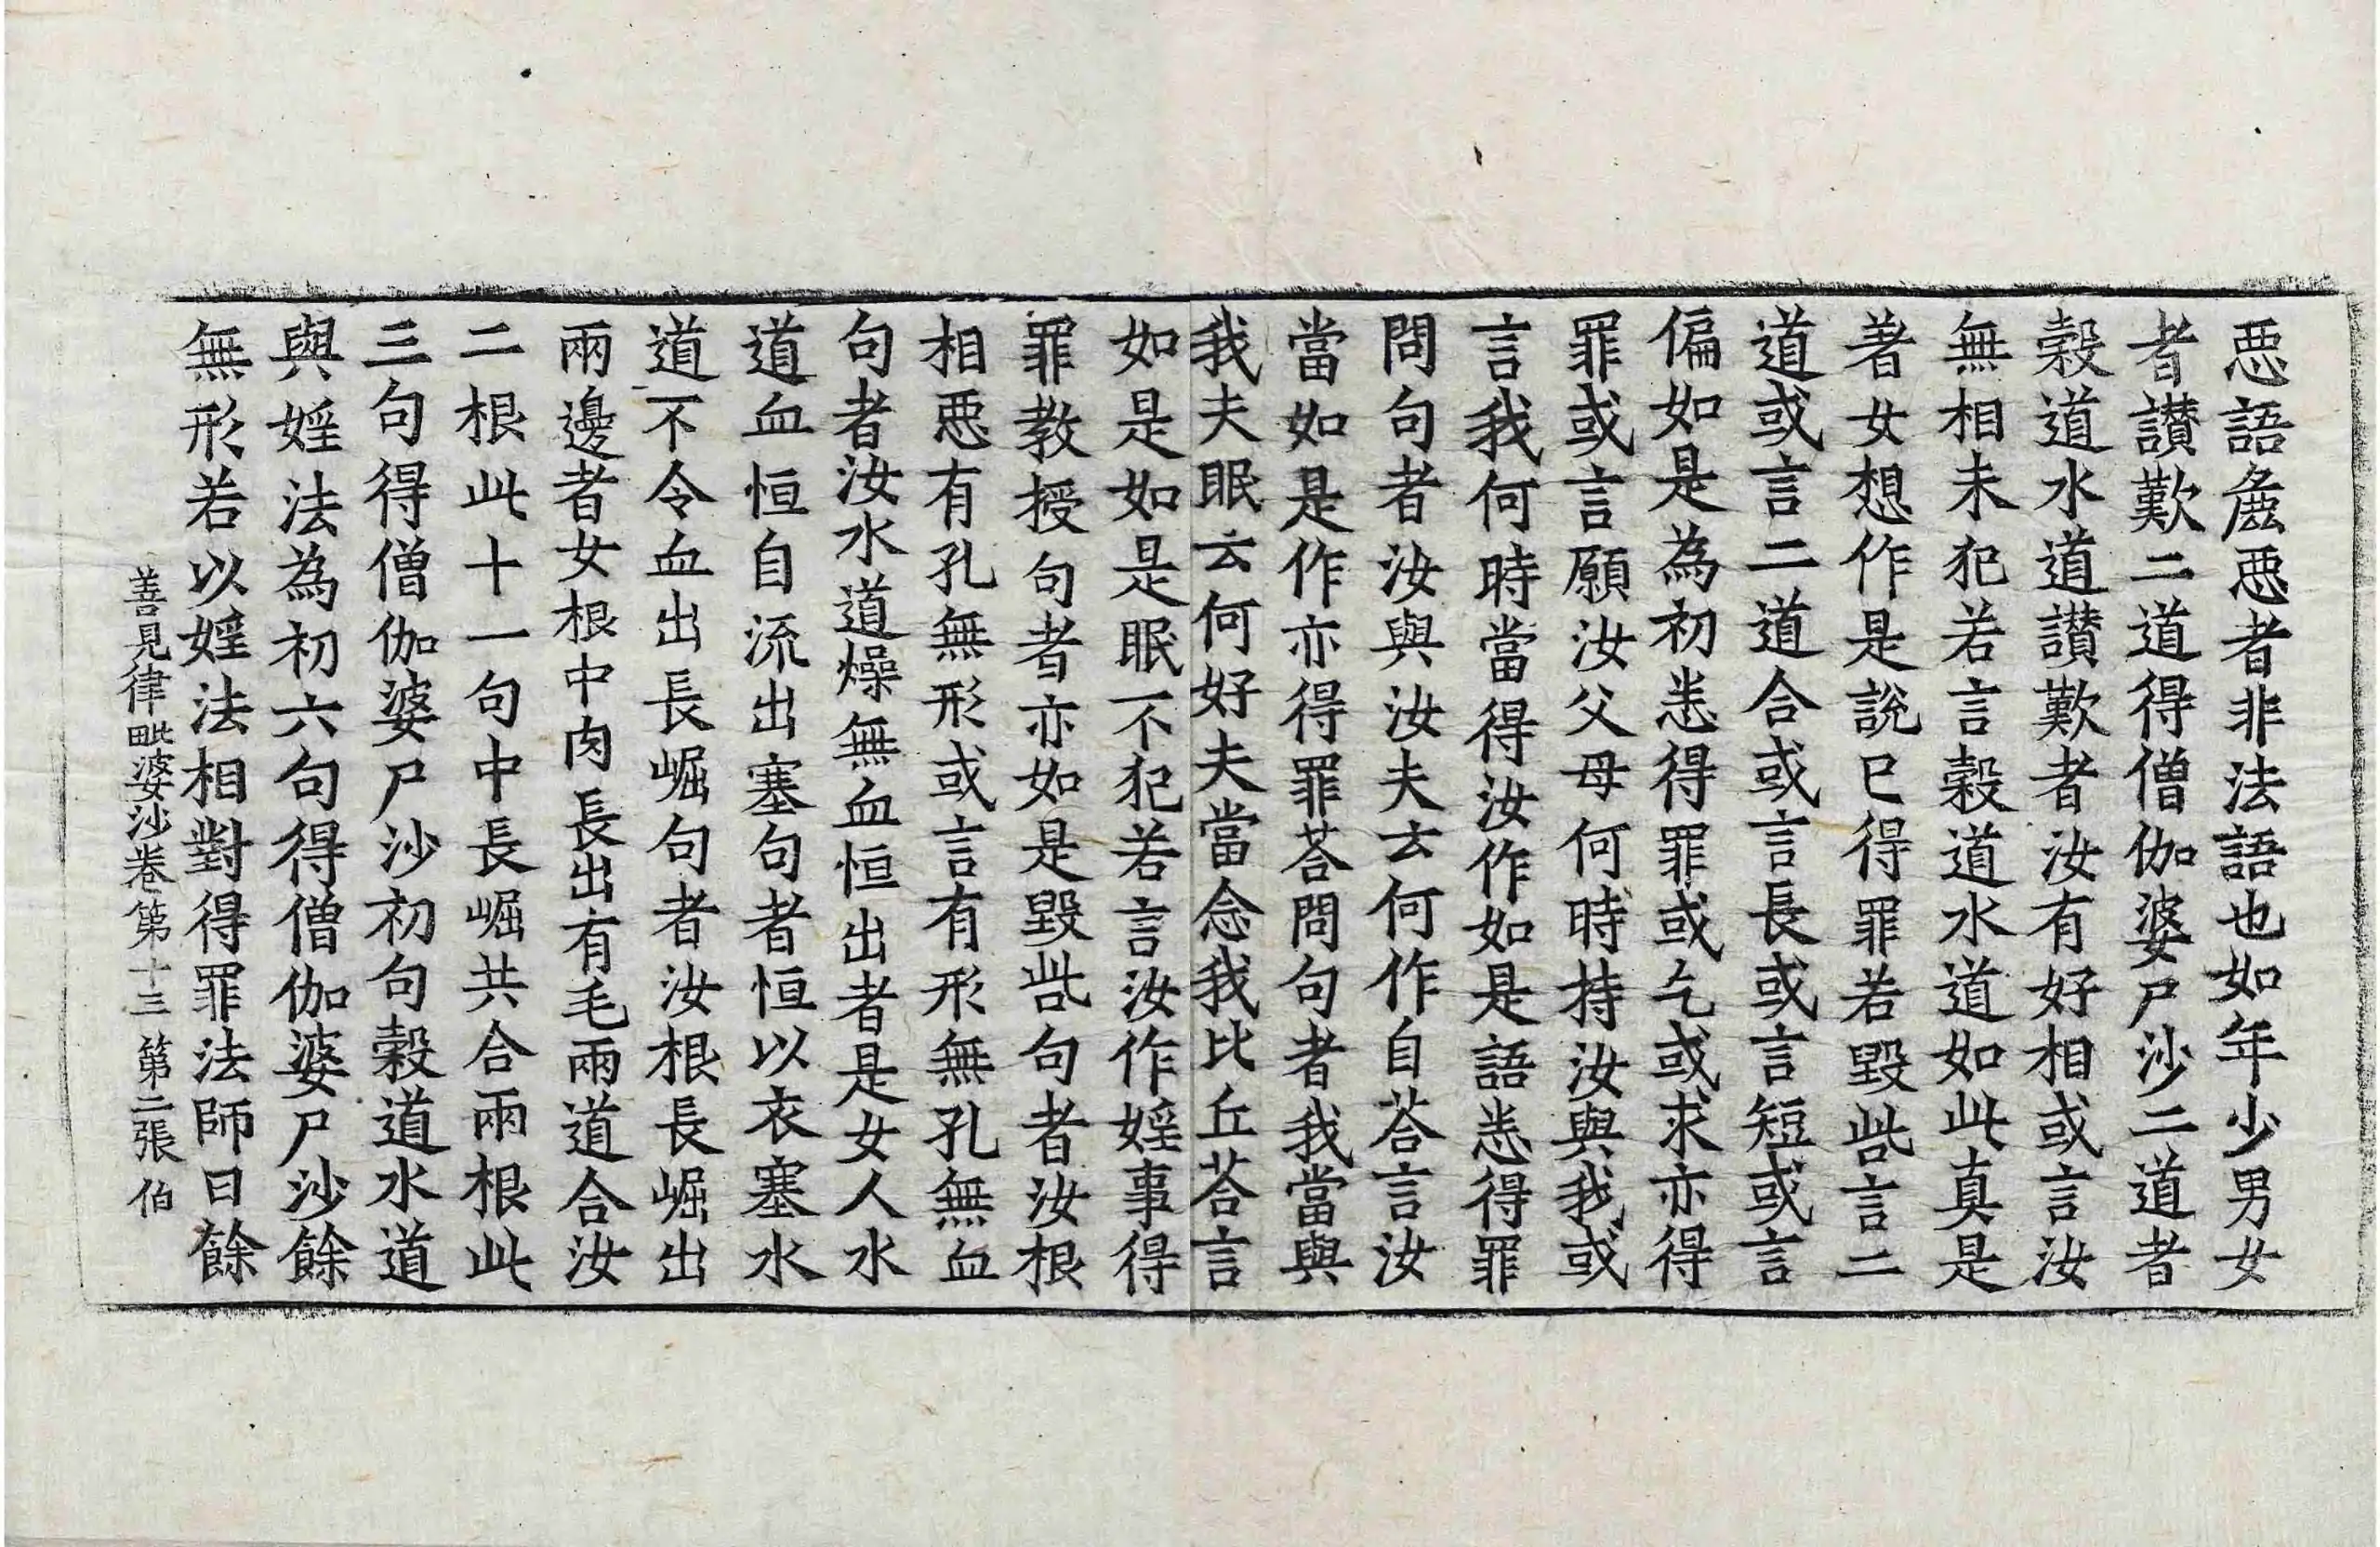 惡語麁惡者非法語也如年少男女
者讃歎二道得僧伽婆尸沙二道者
穀道水道讃歎者汝有好相或言汝
無相未犯若言穀道水道如此真是
著女想作是說已得罪若毀呰言二
道或言二道合或言長或言短或言
偏如是為初悉得罪或乞或求亦得
罪或言願汝父母何時持汝與我或
言我何時當得汝作如是語悉得罪
問句者汝與汝夫去何作自荅言汝
當如是作亦得罪荅問句者我當與
我夫眠云何好夫當念我比丘荅言
如是如是眠不犯若言汝作婬事得
罪教授句者亦如是毀呰句者汝根
相惡有孔無形或言有形無孔無血
句者汝水道燥無血恒出者是女人水
道血恒自流出塞句者恒以衣塞水
道不令血出長崛句者汝根長崛出
兩邊者女根中肉長出有毛兩道合汝
二根此十一句中長崛共合兩根此
三句得僧伽婆尸沙初句穀道水道
與婬法為初六句得僧伽婆尸沙餘
無形若以婬法相對得罪法師曰餘
善見律毗婆沙卷第十三 第二張 伯